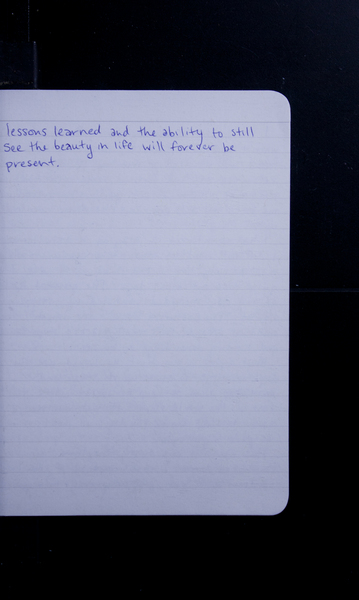 lessons learned and the ability to still
See the beauty in life will forever be
present.